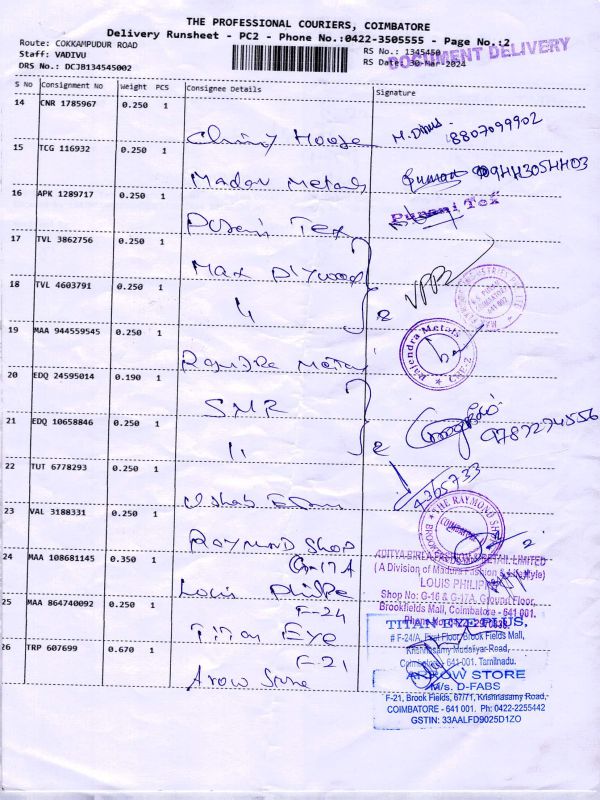 THE PROFESSIONAL COURIERS, COIMBATORE
Delivery Runsheet - PC2 - Phone No.:0422-3505555 - Page No.:2
Route: COKKAMPUDUR ROAD
Staff: VADIVU
DRS No.: DCJB134545002
RS No.: 1345450
RS Date: 30-Mar-2024
DOCUMENT DELIVERY
S No Consignment No Weight PCS Consignee Details Signature
14 CNR 1785967 0.250 1
8807099902
15 TCG 116932 0.250 1
Madav Metals
16 APK 1289717 0.250 1
Tex
17 TVL 3862756 0.250 1
Max Plywood
18 TVL 4603791 0.250 1
"
2
VPPB
19 MAA 944559545 0.250 1
Rajendra Metal
Rajendra Metals
CBE-2
20 EDQ 24595014 0.190 1
SMR
21 EDQ 10658846 0.250 1
"
2
22 TUT 6778293 0.250 1
4365733
23 VAL 3188331 0.250 1
RAYMOND SHOP
THE RAYMOND SHOP
COIMBATORE
24 MAA 108681145 0.350 1
G-17A
Louis Philipe
ADITYA BIRLA FASHION & RETAIL LIMITED
( A Division of Madura Fashion & Lifestyle)
LOUIS PHILIPPE
Shop No: G-16 & G-17A, Ground Floor,
Brookfields Mall, Coimbatore - 641 001.
25 MAA 864740092 0.250 1
F-24
Titan Eye
TITAN EYE PLUS.
# F-24/A, First Floor, Brook Fields Mall,
Krishnasamy Mudaliyar-Road,
Coimbatore - 641-001. Tamilnadu.
26 TRP 607699 0.670 1
F-21
Arow Store
ARROW STORE
M/s. D-FABS
F-21, Brook Fields, 67/71, Krishnasamy Road,
COIMBATORE - 641 001. Ph: 0422-2255442
GSTIN: 33AALFD9025D1ZO